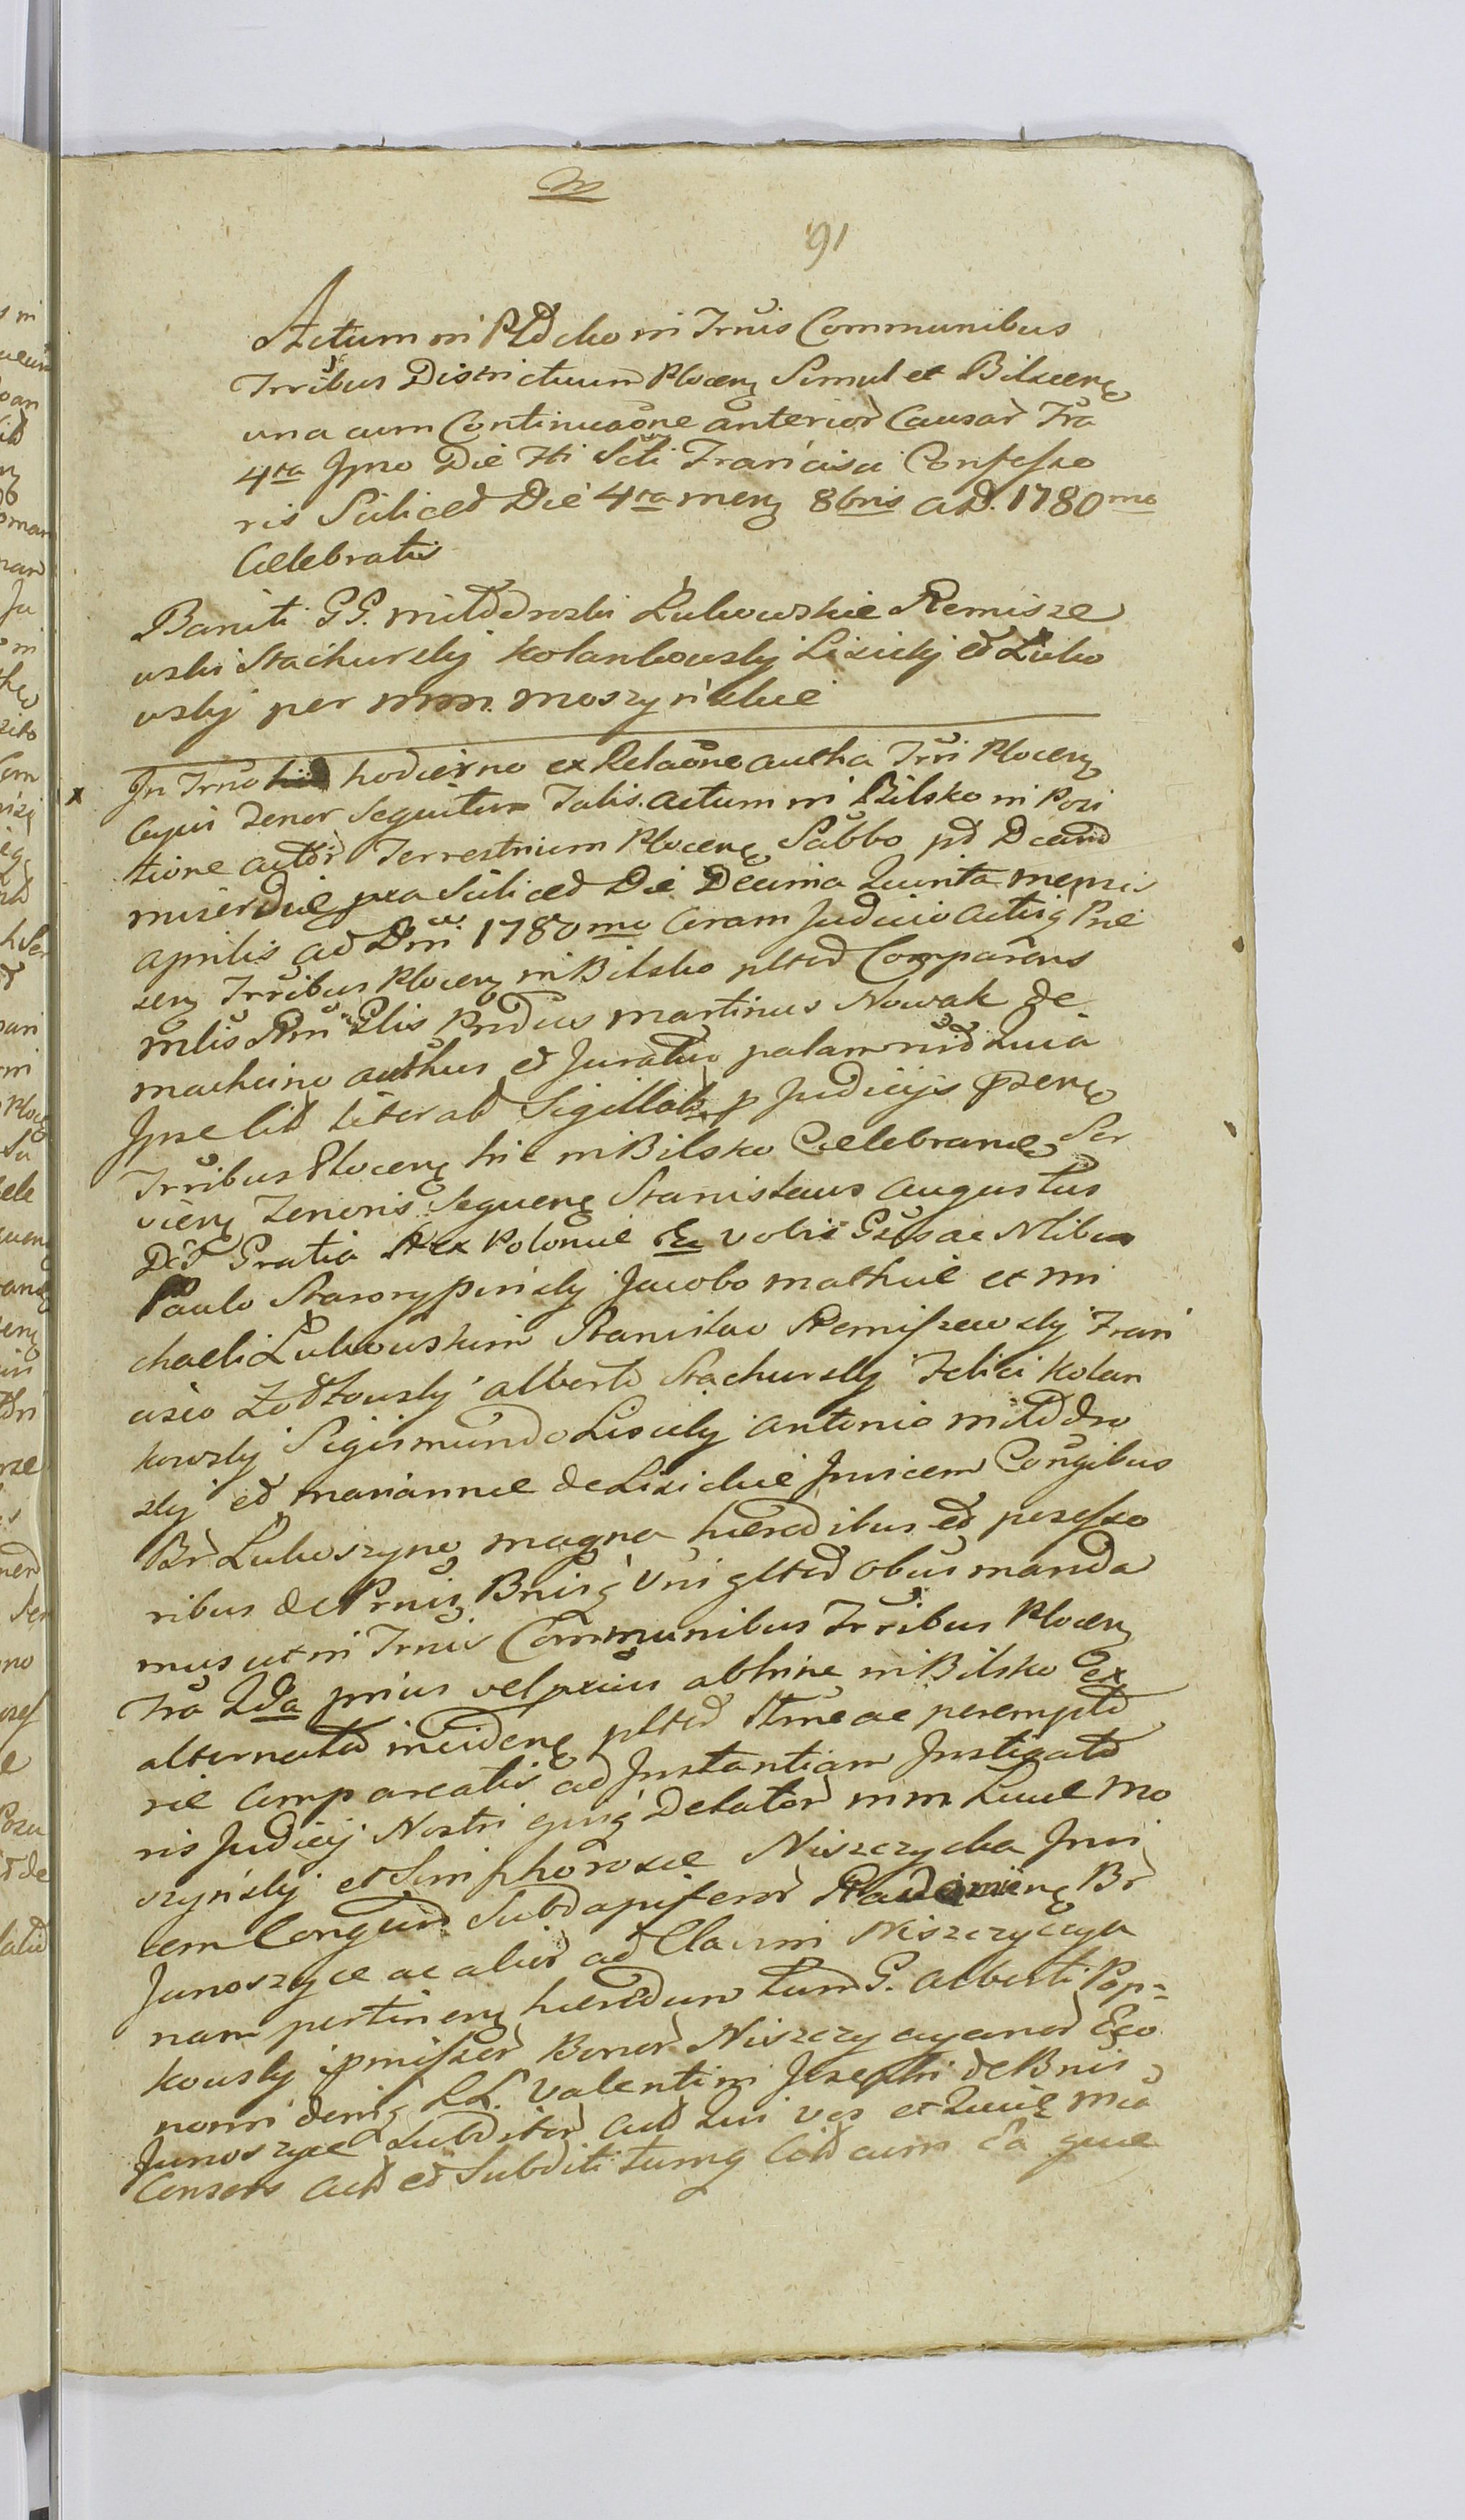 91
Actum in Płocko in Trnis Communibus
Trribus Districtuum Plocen Simul et Bilscen
una cum Continuaone anterior Causar Fra
4ta Ipso Die Fti Scti Francisci Confesso
ris Scilicet Die 4ta mens 8bris AD. 1780mo
Celebratis
Baniti GG. Miłodrozki Łukowskie Remisze
wski Stachurskÿ Kolankowskÿ Lisickÿ et Łuko
wskÿ per mm. Moszyńskie
x In Trno hodierno ex Relaone autha Trri Plocen
Cujus Tenor Sequitur Talis. Actum in Bilsko in Posi
tione actor Terrestrium Plocen Sabbo pt Dcand
miserdiae pxa Scilicet Die Decima Quinta mensis
Aprilis AD Dni 1780mo Coram Judicio Actisq Prae
sen Trribus Plocen in Bilsko pltr Comparens
mlis Rni Glis Prdus Martinus Nowak de
Machcino authus et Juratus palam rud Quia
Ipse lit literat Sigillat p Judicijs psen
Trribus Plocen hic in Bilsko Celebran Ser
vien Tenoris Sequen Stanislaus Augustus
Dei Gratia Rex Poloniae &c vobis Gssac Nlibus
Paulo Staroryपińskÿ Jacobo Mathiae et Mi
chaeli Łukowskim Stanislao Remiszewskÿ Fran
cisco Żołtowskÿ Alberto Stachurskÿ Felici Kolan
kowskÿ Sigismundo Lisickÿ Antonio Miłodro
skÿ et Mariannae de Lisickie Invicem Conjgibus
Br Łukoszyno magna haeredibus et posesso
ribus de Prnis Bnisq Vris gltr obus manda
mus ut in Trnis Communibus Trribus Plocen
Fra 2da prius vel pxius abhinc in Bilsko ex
alternata inciden pltr Rtme ac perempto
rie Compareatis ad Instantiam Instigato
ris Judicij Nostri ejusq Delator mm Lucae Mo
szyńskÿ et Simphorosae Niszczycka Invi
cem Conjgum Subdapiferor Radzimien Br
Junoszyce ac alior ad Clavim Niszczycya
nam pertinen haeredum tum G. Alberti Pop=
kowskÿ ipmissor Bonor Niszczycyanor Eco
nomi deniq LL. Valentini Josephi de Bnis
Junoszyce Subditor act Qui vos et Quiae mca
Consors act et Subditi tumq Cit cum ea quae